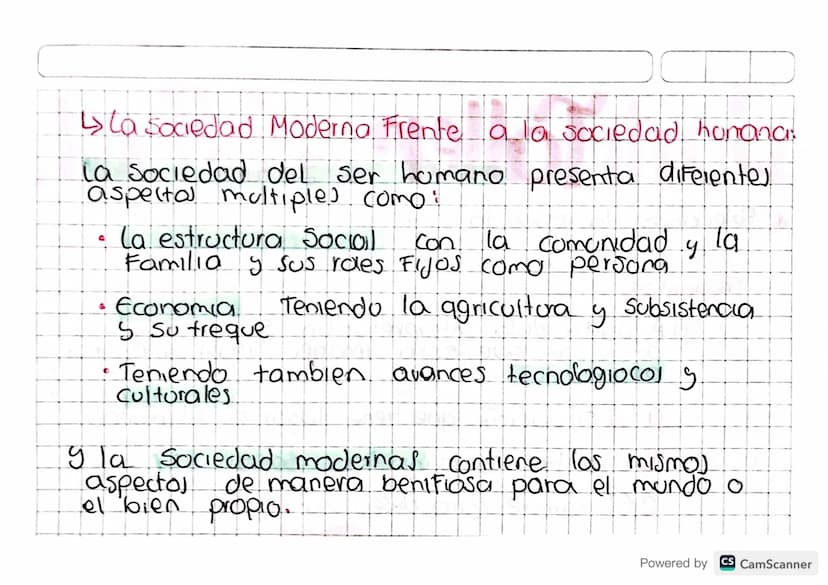 ↳ La Sociedad Moderna Frente a la sociedad humana:
La sociedad del ser humano presenta diferentes
aspectos multiples como:
• La estructura Social con la comunidad y la
Familia y sus roles Fijos como persona
• Economia Teniendo la aggricultura y subsistencia
y su treque
• Teniendo tambien avances tecnologiocos y
culturales
y la sociedad modernas contiene los mismos
aspectos de manera benifiosa para el mundo o
el bien propio.
Powered by CS CamScanner